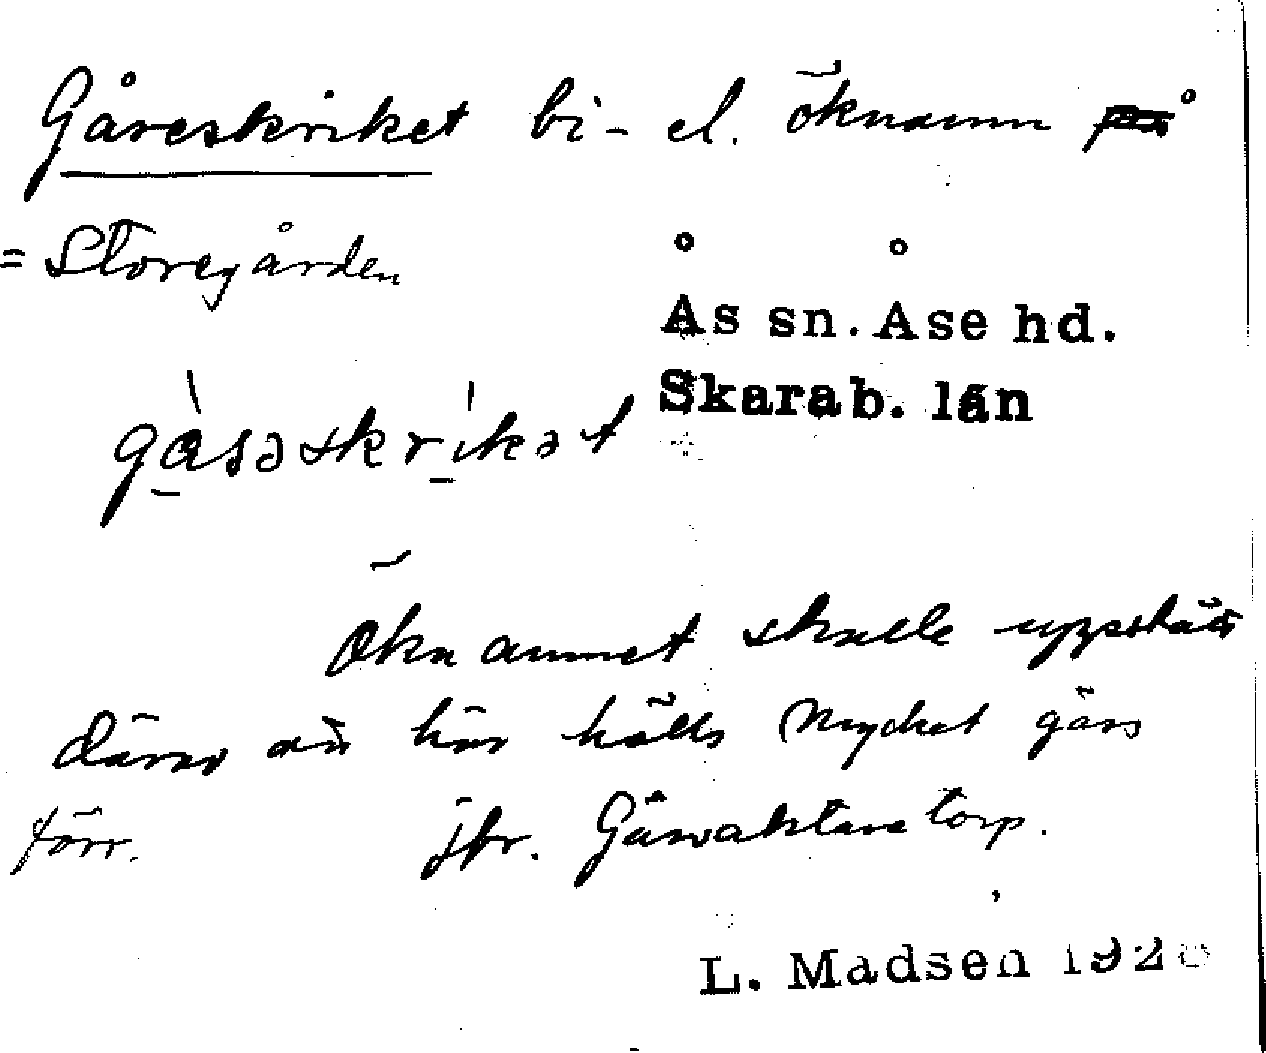 Gåseskriket bi- el. öknamn på
= Storegården
Ås sn. Åse hd.
Skarab. län
gåsəskrikət
Öknamnet skulle uppstått
därav att här hölls mycket gäss
förr. jfr. Gåsvaktaretorp.
L. Madsen 1926